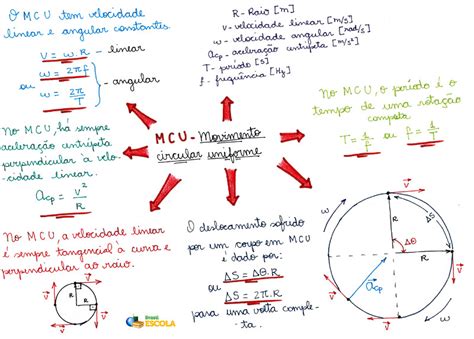 O MCU tem velocidade
linear e angular constantes.
V = ω.R - linear
ω = 2πf
ou
ω = 2π/T
- angular
R - Raio [m]
v - velocidade linear [m/s]
ω - velocidade angular [rad/s]
acp - aceleração centrípeta [m/s²]
T - período [s]
f - frequência [Hz]
No MCU, o período é o
tempo de uma rotação
completa.
T = 1/f ou f = 1/T
No MCU, há sempre
aceleração centrípeta
perpendicular à velo-
cidade linear.
acp = v²/R
MCU - Movimento
circular uniforme
No MCU, a velocidade linear
é sempre tangencial à curva e
perpendicular ao raio.
v
v
v
v
R
R
Brasil
ESCOLA
O deslocamento sofrido
por um corpo em MCU
é dado por:
ΔS = Δθ.R
ou
ΔS = 2π.R
para uma volta comple-
ta.
ω
v
v
R
ΔS
Δθ
R
acp
v
v
ω